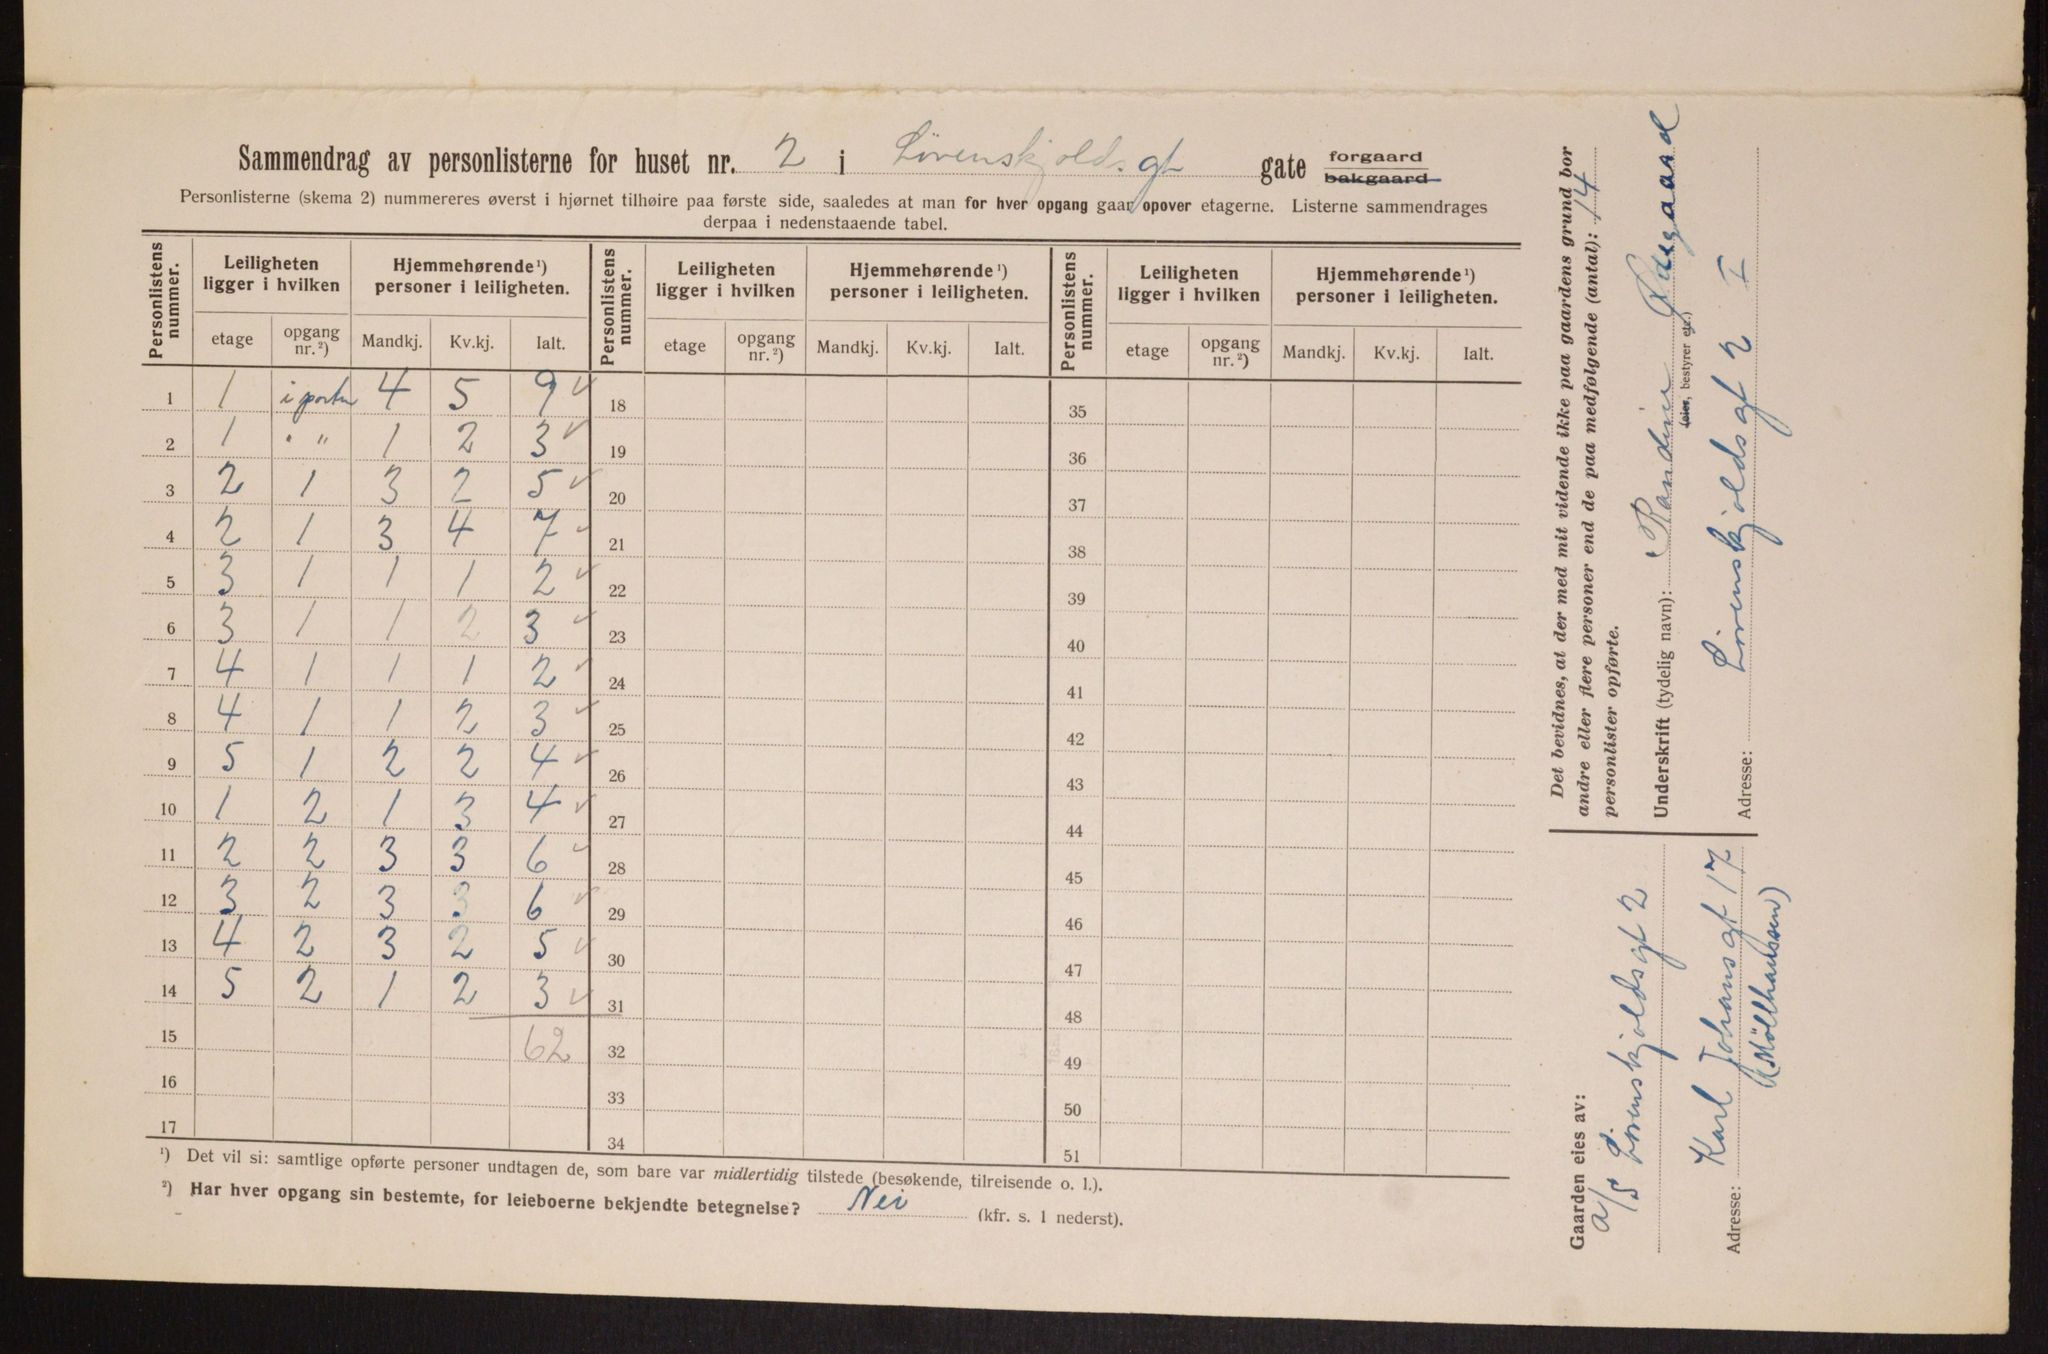 Sammendrag av personlisterne for huset nr. 2 i Lövenskjolds gt gate forgaard bakgaard
Personlisterne (skema 2) nummereres øverst i hjørnet tilhøire paa første side, saaledes at man for hver opgang gaar opover etagerne. Listerne sammendrages
derpaa i nedenstaaende tabel.
Personlistens nummer. Leiligheten ligger i hvilken Hjemmehørende¹) personer i leiligheten. Personlistens nummer. Leiligheten ligger i hvilken Hjemmehørende¹) personer i leiligheten. Personlistens nummer. Leiligheten ligger i hvilken Hjemmehørende¹) personer i leiligheten.
etage opgang nr.²) Mandkj. Kv.kj. Ialt. etage opgang nr.²) Mandkj. Kv.kj. Ialt. etage opgang nr.²) Mandkj. Kv.kj. Ialt.
1 1 i porten 4 5 9 ✓ 18 35
2 1 " " 1 2 3 ✓ 19 36
3 2 1 3 2 5 ✓ 20 37
4 2 1 3 4 7 ✓ 21 38
5 3 1 1 1 2 ✓ 22 39
6 3 1 1 2 3 ✓ 23 40
7 4 1 1 1 2 ✓ 24 41
8 4 1 1 2 3 ✓ 25 42
9 5 1 2 2 4 ✓ 26 43
10 1 2 1 3 4 ✓ 27 44
11 2 2 3 3 6 ✓ 28 45
12 3 2 3 3 6 ✓ 29 46
13 4 2 3 2 5 ✓ 30 47
14 5 2 1 2 3 ✓ 31 48
15 62 32 49
16 33 50
17 34 51
¹) Det vil si: samtlige opførte personer undtagen de, som bare var midlertidig tilstede (besøkende, tilreisende o. l.).
²) Har hver opgang sin bestemte, for leieboerne bekjendte betegnelse? Nei (kfr. s. 1 nederst).
Det bevidnes, at der med mit vidende ikke paa gaardens grund bor
andre eller flere personer end de paa medfølgende (antal): 14
personlister opførte.
Underskrift (tydelig navn): Randine Ødegaard
(eier, bestyrer etc.)
Adresse: Lövenskjoldsgt 2 I
Gaarden eies av:
A/S Lövenskjoldsgt 2
Adresse: Karl Johansgt 17
(Mølhausen)